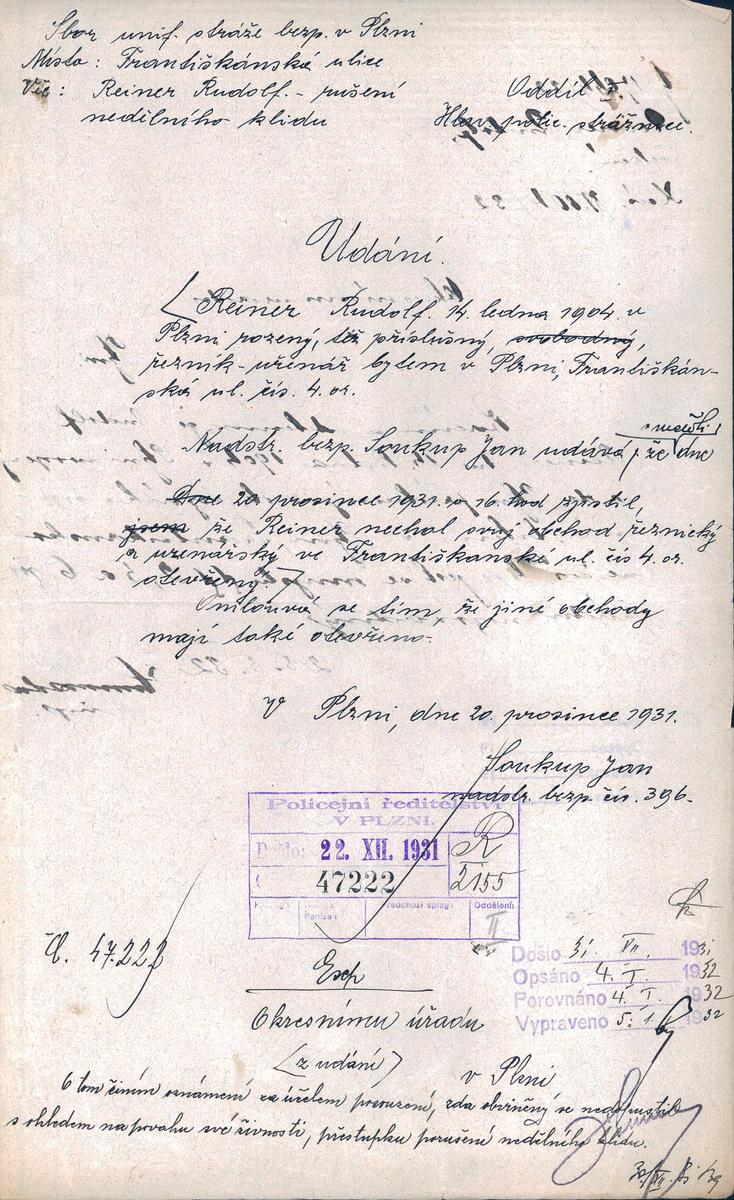 Sbor unif. stráže bezp. v Plzni
Místo: Františkánská ulice
Věc: Reiner Rudolf. - rušení
nedělního klidu
Oddíl
Hlav. polic. strážnice.
Udání.
Reiner Rudolf, 14. ledna 1904 v
Plzni rozený, též příslušný, svobodný,
řezník-uzenář bytem v Plzni, Františkán-
ská ul. čís. 4. or.
Nadstr. bezp. Soukup Jan udává, že dne
Dne 20 prosince 1931 v 16. hod zjistil,
jsem že Reiner nechal svůj obchod řeznický
a uzenářský ve Františkánské ul. čís 4. or.
otevřený.
Omlouvá se tím, že jiné obchody
mají také otevřeno.
V Plzni, dne 20. prosince 1931.
Soukup Jan
nadstr. bezp. čís. 396.
Policejní ředitelství
V PLZNI.
Došlo: 22. XII. 1931
47222
R
2155
Peníze:
Předchozí spisy:
Oddělení:
II
Č. 47.222
Došlo 31. XII. 1931
Opsáno 4. I. 1932
Porovnáno 4. I. 1932
Vypraveno 5. I. 1932
Exp
Okresnímu úřadu
(z udání)
v Plzni
O tom činím oznámení za účelem posouzení, zda obviněný se nedopustil
s ohledem na povahu své živnosti, přestupku porušení nedělního klidu.